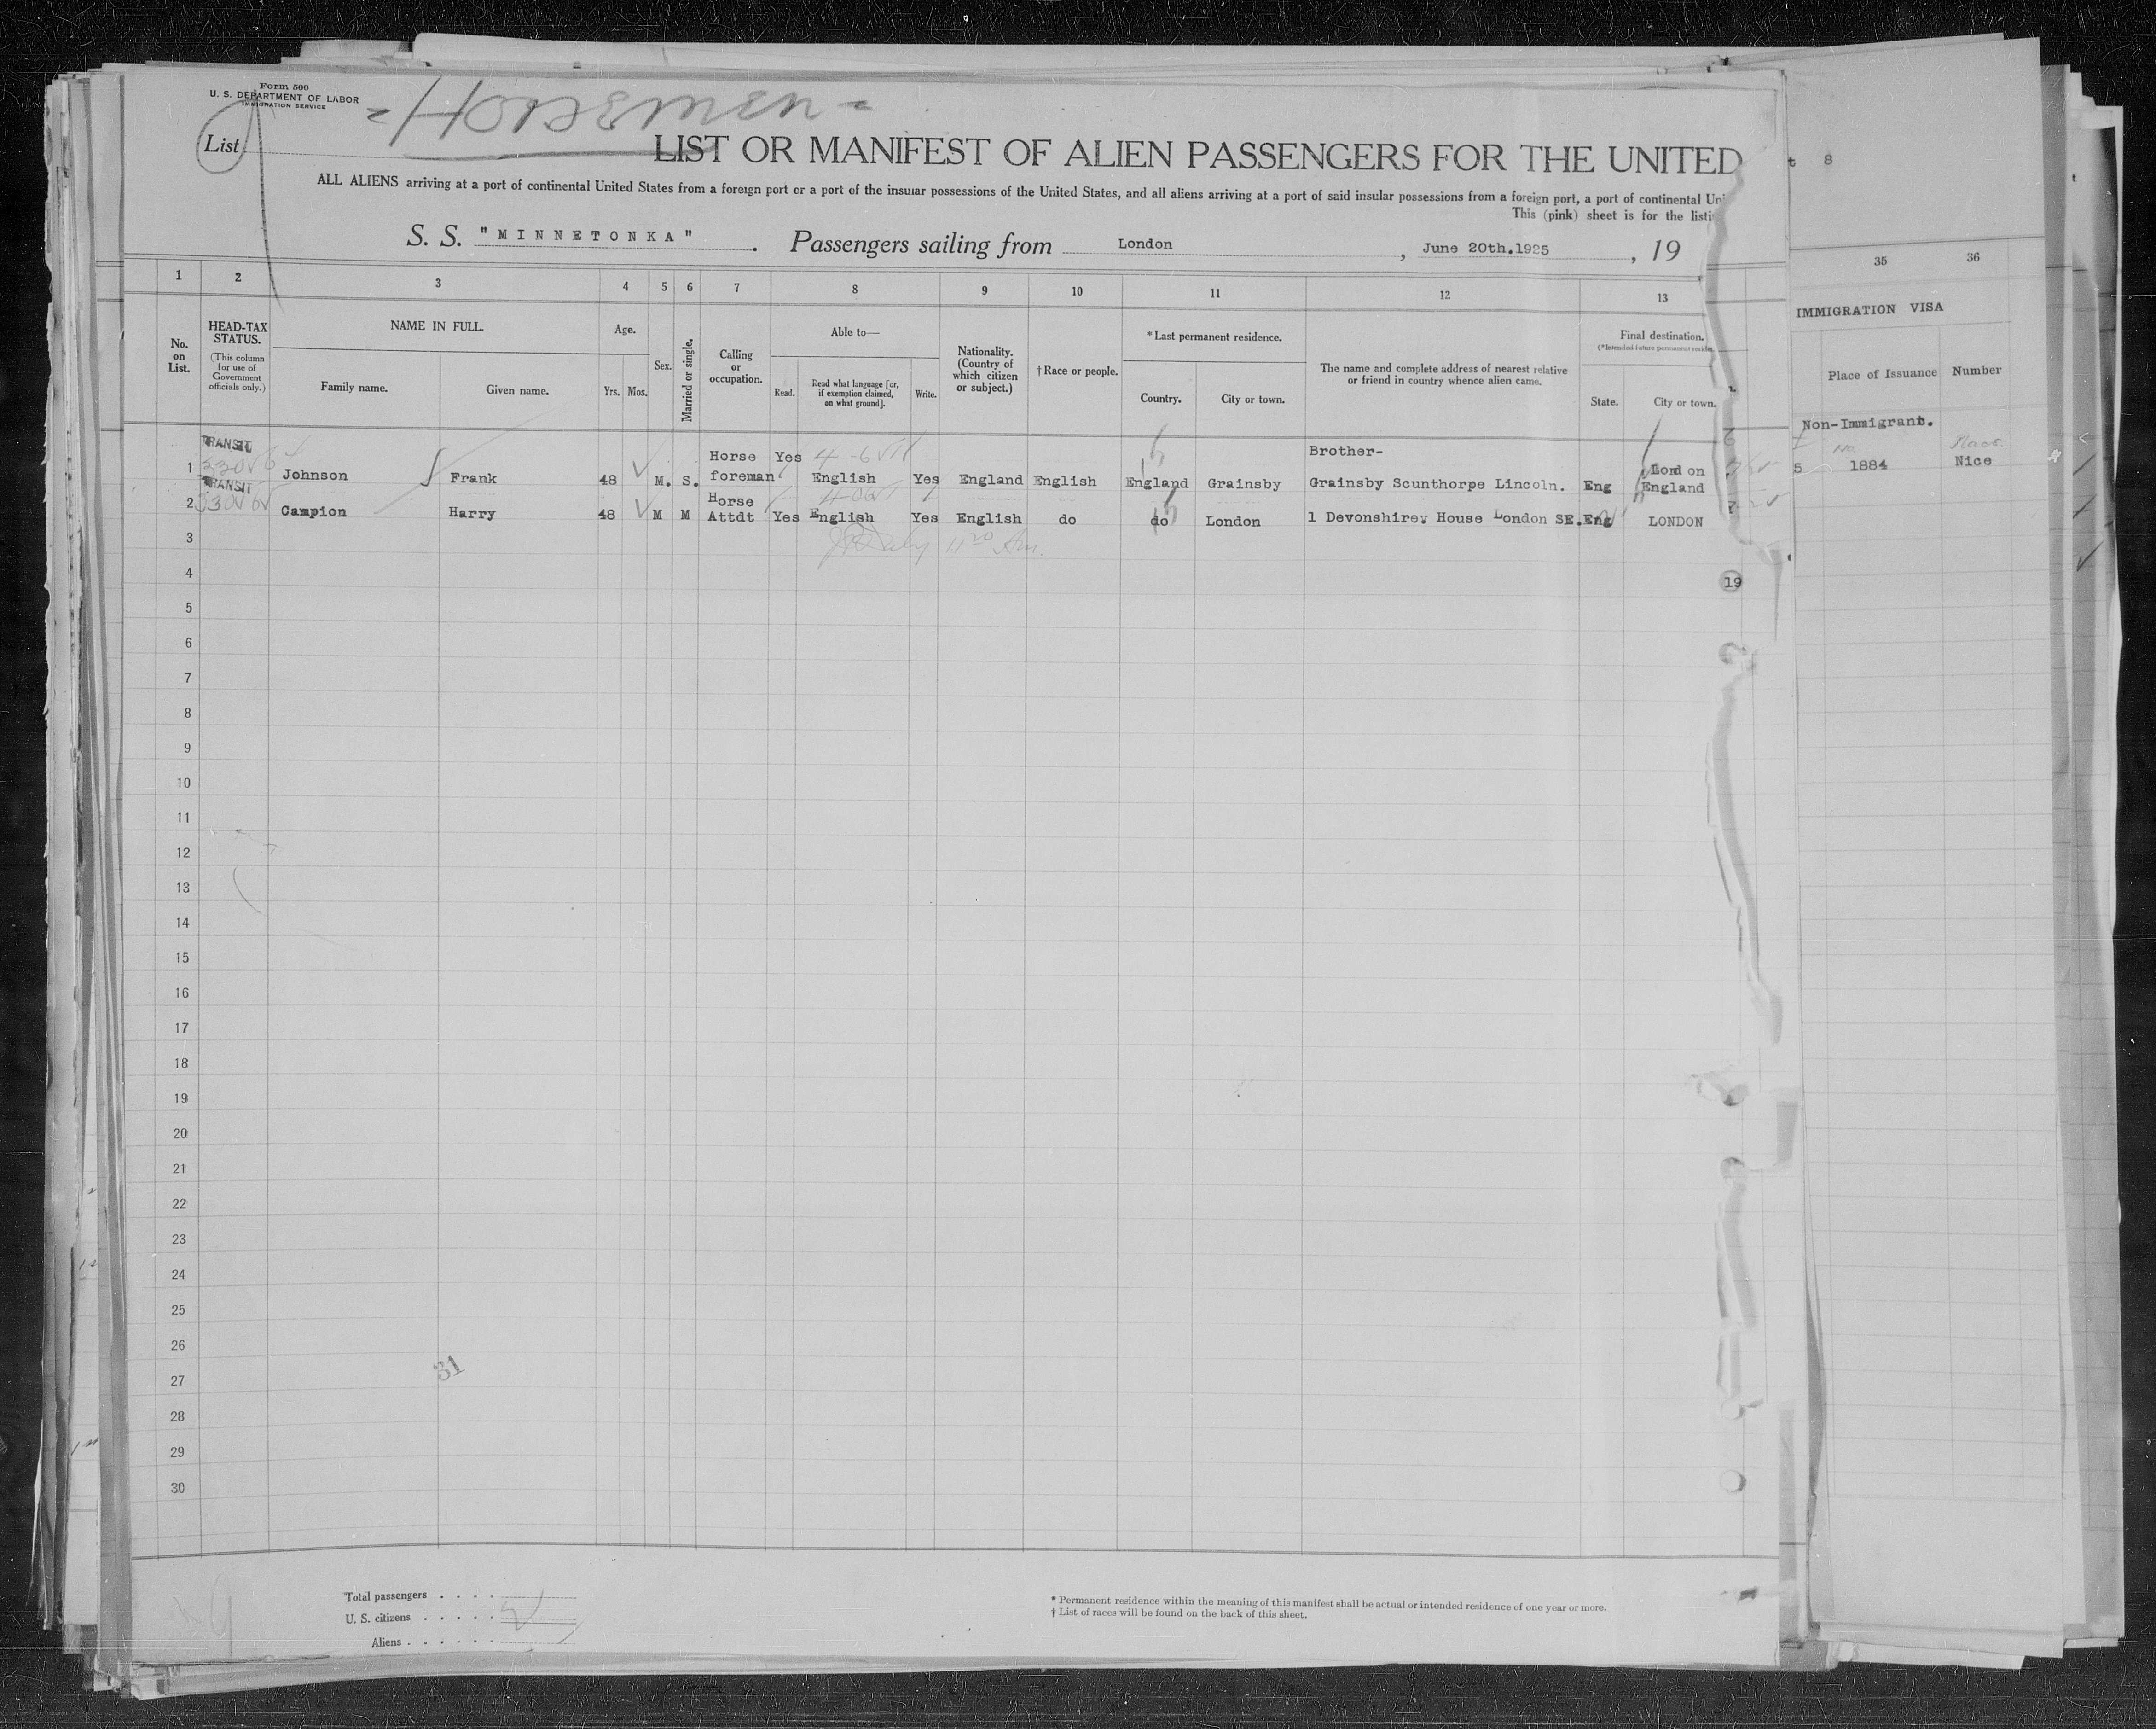 Form 500
U. S. DEPARTMENT OF LABOR
IMMIGRATION SERVICE
= Horsemen =
List
LIST OR MANIFEST OF ALIEN PASSENGERS FOR THE UNITED
t 8
ALL ALIENS arriving at a port of continental United States from a foreign port or a port of the insular possessions of the United States, and all aliens arriving at a port of said insular possessions from a foreign port, a port of continental
This (pink) sheet is for the
S. S. "MINNETONKA". Passengers sailing from London, June 20th.1925, 19
1 2 3 4 5 6 7 8 9 10 11 12 13
35 36
No. on List.
HEAD-TAX STATUS.
(This column for use of Government officials only.)
NAME IN FULL.
Family name. Given name.
Age.
Yrs. Mos.
Sex.
Married or single.
Calling or occupation.
Able to—
Read. Read what language [or, if exemption claimed, on what ground]. Write.
Nationality. (Country of which citizen or subject.)
†Race or people.
*Last permanent residence.
Country. City or town.
The name and complete address of nearest relative or friend in country whence alien came.
Final destination.
(*Intended future permanent
State. City or town.
IMMIGRATION VISA
Place of Issuance Number
Non-Immigrant.
TRANSIT
1 Johnson Frank 48 M. S. Horse foreman Yes English Yes England English England Grainsby Brother- Grainsby Scunthorpe Lincoln. Eng London England
5 1884 Nice
TRANSIT
2 Campion Harry 48 M M Horse Attdt Yes English Yes English do do London 1 Devonshirev House London SE. Eng LONDON
3
4
19
5
6
7
8
9
10
11
12
13
14
15
16
17
18
19
20
21
22
23
24
25
26
31
27
28
29
30
Total passengers . . . .
U. S. citizens . . . . .
Aliens . . . . . .
* Permanent residence within the meaning of this manifest shall be actual or intended residence of one year or more.
† List of races will be found on the back of this sheet.